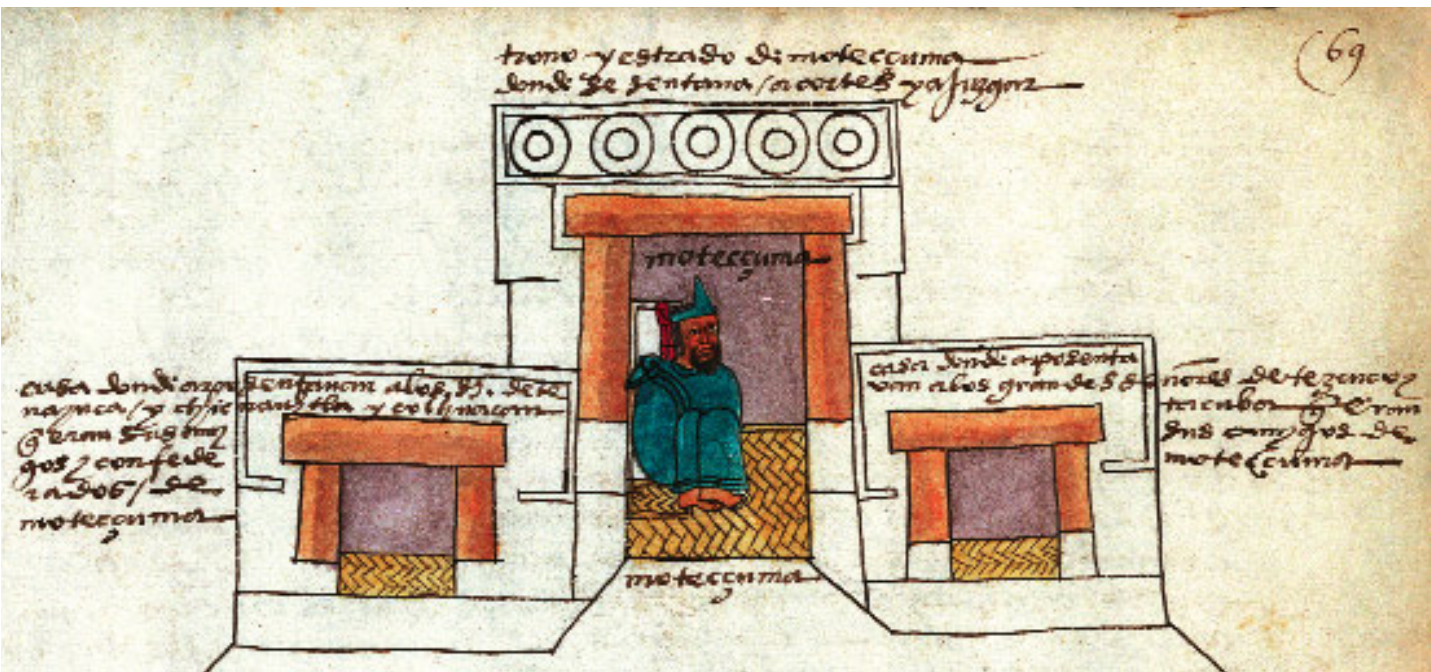 (69
trono y estrado de motecçuma
donde se sentaua / a cortes y a juzgar
motecçuma
casa donde aposentauan a los s.s de te
nayuca / y chiconautla y colhuacan
q̃ eran sus ami
gos y confede
rados / de
motecçuma
casa donde aposenta
uan a los grandes señores de tezcuco y
tacuba q̃ eran
sus amygos de
motecçuma
motecçuma